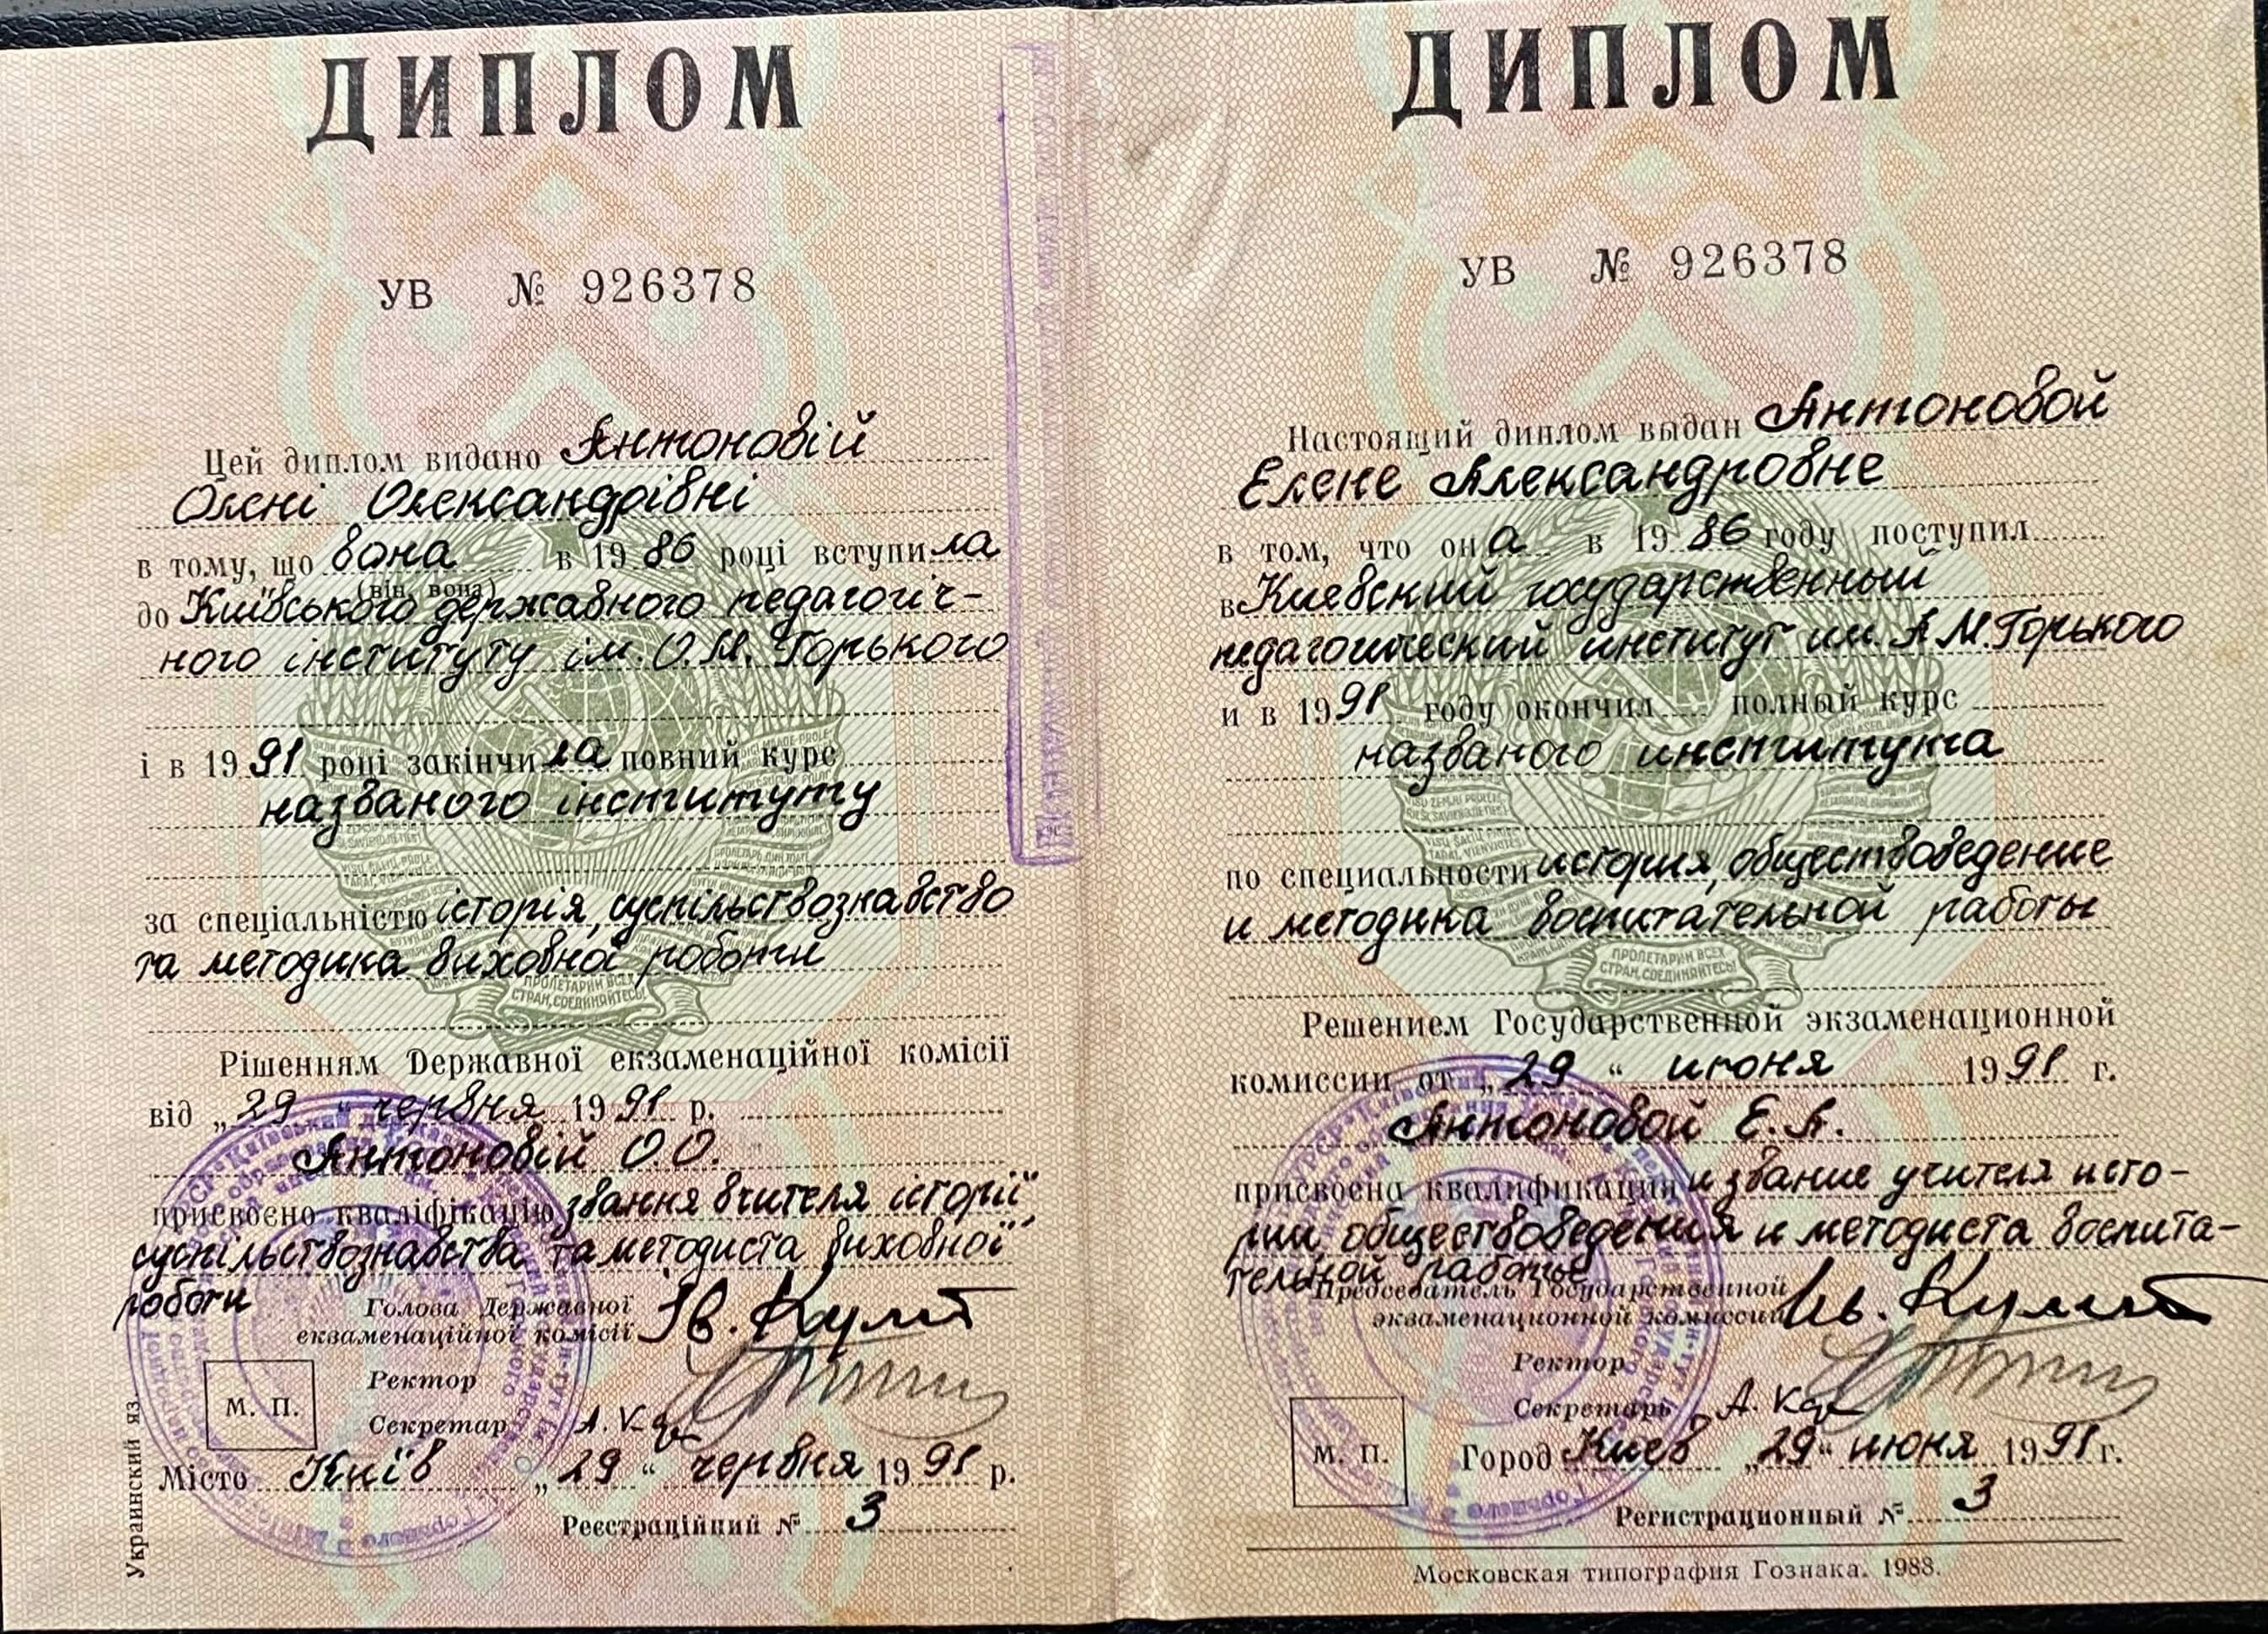 ДИПЛОМ
УВ № 926378
Цей диплом видано Антоновій
Олені Олександрівні
в тому, що вона в 1986 році вступила
(він, вона)
до Київського державного педагогіч-
ного інституту ім. О.М. Горького
і в 1991 році закінчила повний курс
названого інституту
за спеціальністю історія, суспільствознавство
та методика виховної роботи
ПРОЛЕТАРИИ ВСЕХ
СТРАН, СОЕДИНЯЙТЕСЬ!
Рішенням Державної екзаменаційної комісії
від „29“ червня 1991 р.
Антоновій О.О.
присвоєно кваліфікацію звання вчителя історії,
суспільствознавства та методиста виховної
роботи
Голова Державної
екзаменаційної комісії
Ректор
М. П.
Секретар
Місто Київ „29“ червня 1991 р.
Реєстраційний № 3
Украинский яз.
ДИПЛОМ
УВ № 926378
Настоящий диплом выдан Антоновой
Елене Александровне
в том, что она в 1986 году поступил
в Киевский государственный
педагогический институт им. А.М.Горького
и в 1991 году окончил полный курс
названого института
по специальности история, обществоведение
и методика воспитательной работы
ПРОЛЕТАРИИ ВСЕХ
СТРАН, СОЕДИНЯЙТЕСЬ!
Решением Государственной экзаменационной
комиссии от „29“ июня 1991 г.
Антоновой Е.А.
присвоена квалификация и звание учителя исто-
рии, обществоведения и методиста воспита-
тельной работы
Председатель Государственной
экзаменационной комиссии
Ректор
Секретарь
М. П.
Город Киев „29“ июня 1991 г.
Регистрационный № 3
Московская типография Гознака. 1988.